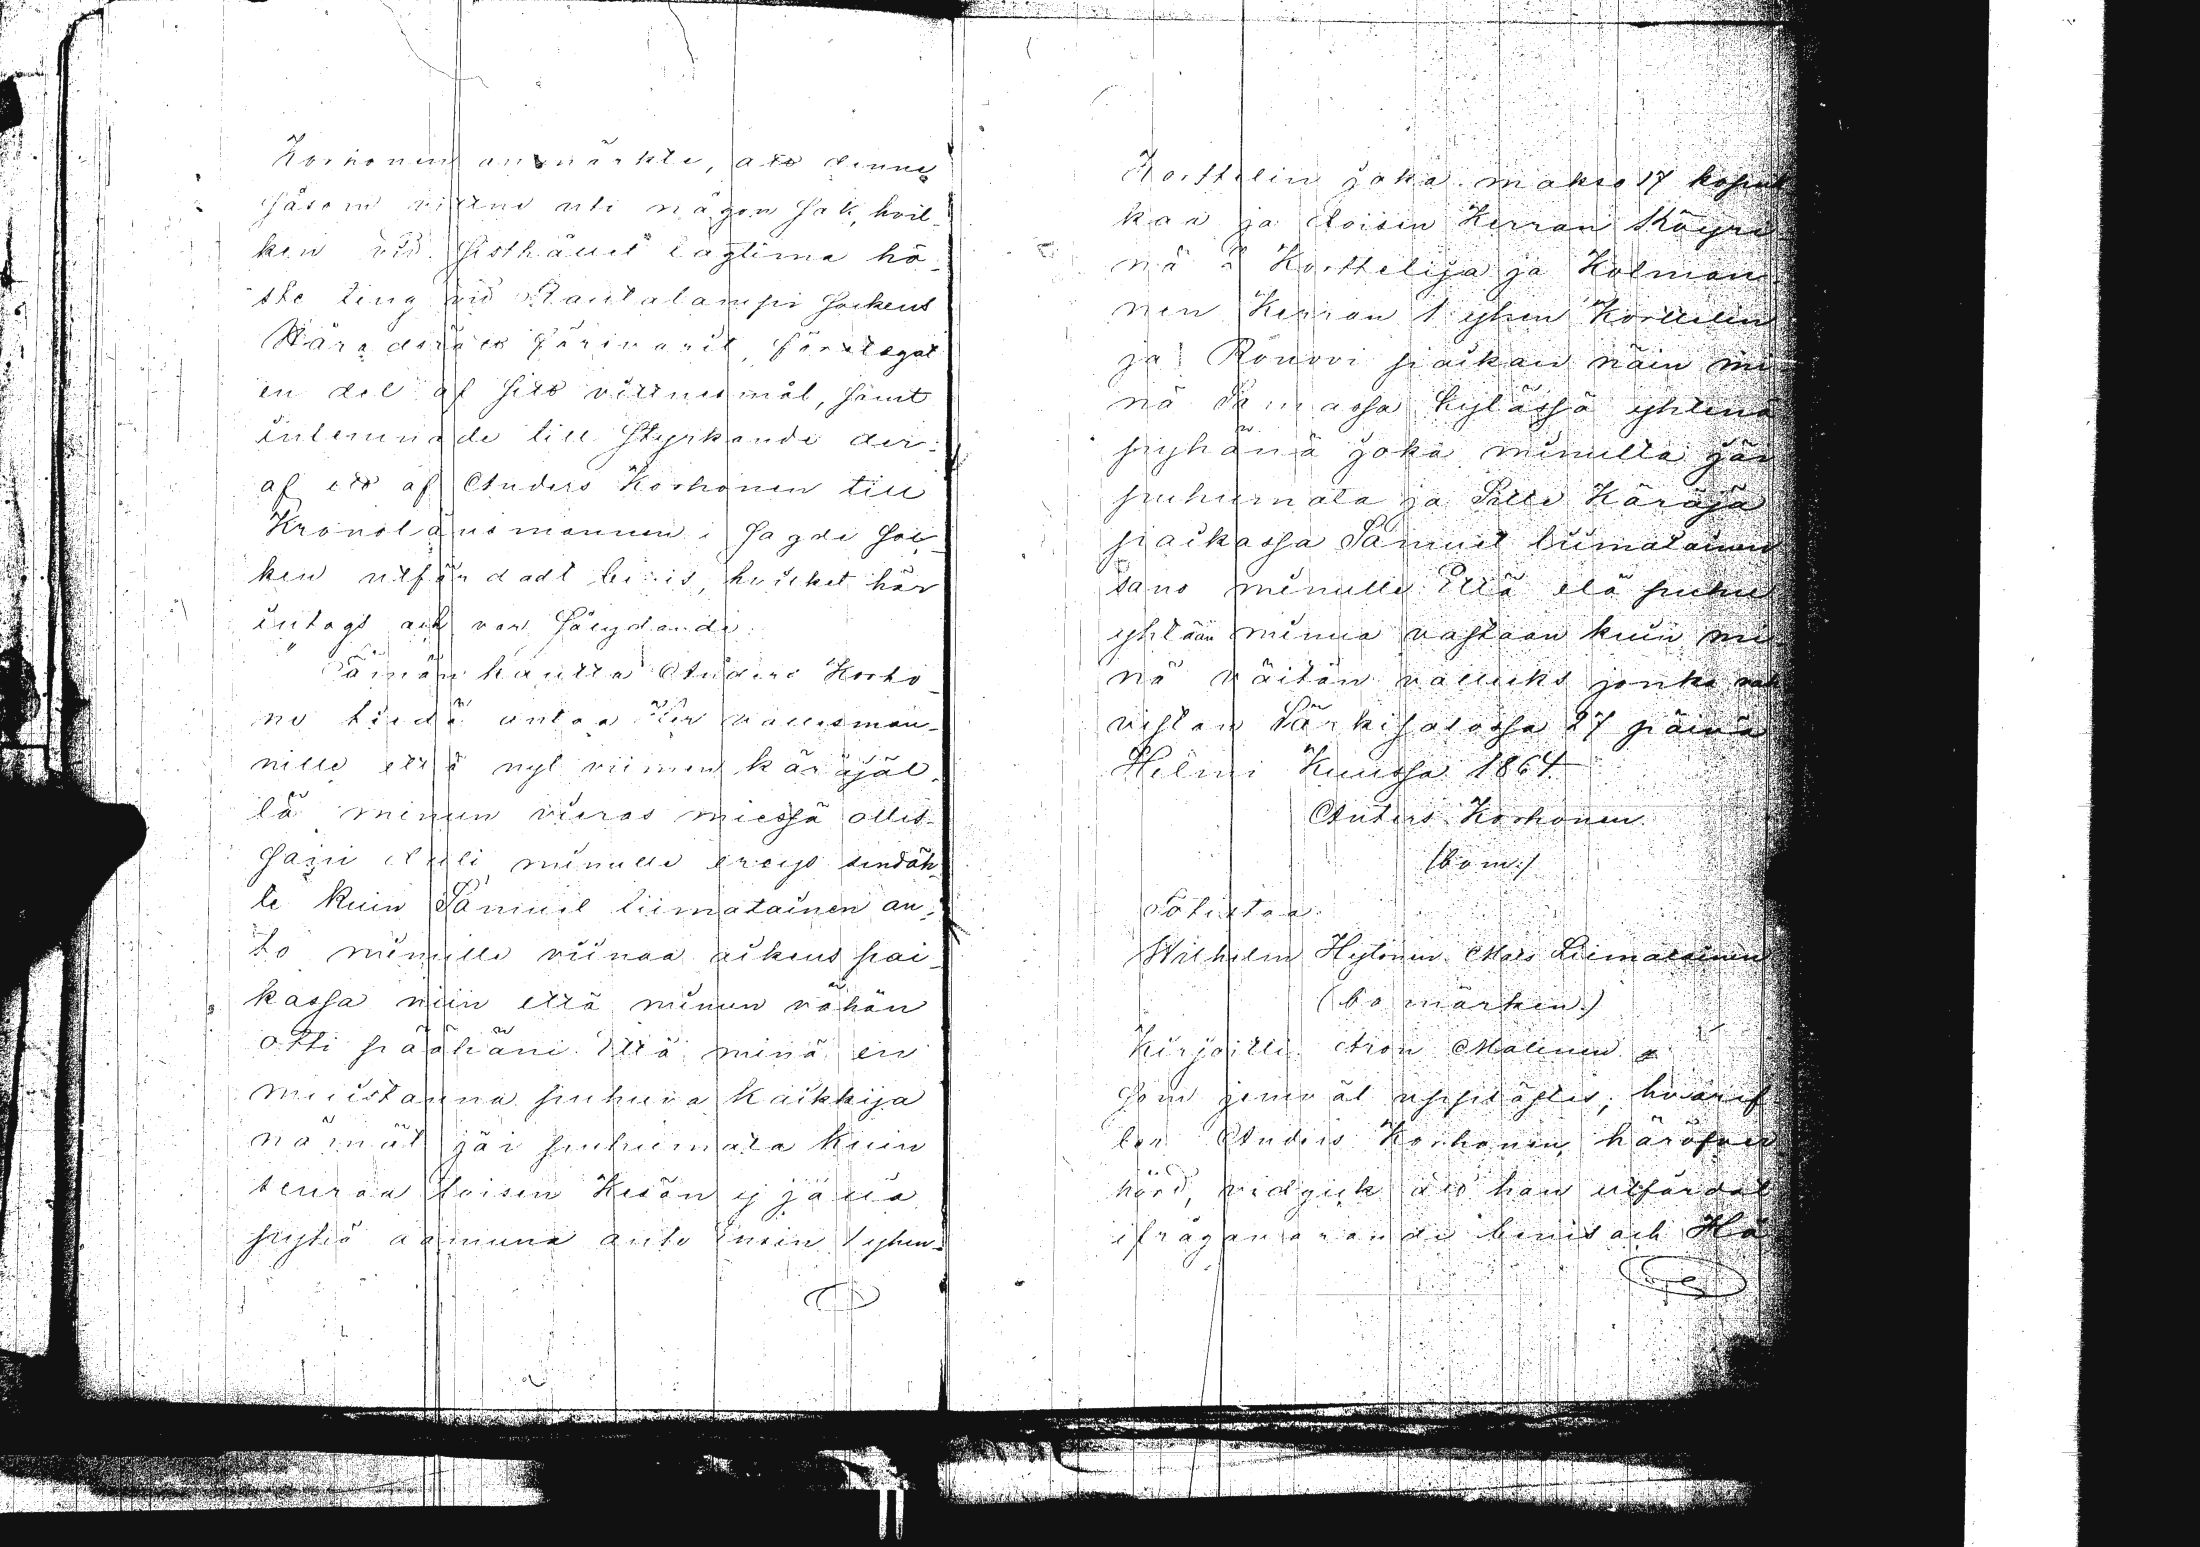 Korhonen anmärkte, att denne
såsom vittne uti någon sak, hvil-
ken vid sisthållet lagtima hö-
ste ting vid Rautalampi sockens
Häradsrätt förivarit, förtegat
en del af sitt vittnesmål, samt
inlemnade till styrkande der-
af ett af Anders Korhonen till
Kronolänsmannen i sagde soc-
ken utfärdadt bevis, hvilket här
intogs och var sålydande:
Tämän kautta Anders Korho-
no tiedä antaa Her vallesman-
nille että nyt viimen käräjäl-
lä minun vieras miessä ollis-
sani tuli minulle ereys sendäh-
te kuin Samuil Liimatainen an-
to minulle viinaa oikeus pai-
kassa niin että minun vähän
otti päähäni Että minä en
muistanna puhuva kaikkija
nämät jäi puhumata kuin
seuraa toisen Kesän ij jällä
pyhä aamuna anto Ensin 1 yhen-
Korttelin joka makso 17 kopek
kaa ja toisen Kerran Köyri
nä 2 Korttelija ja Kolman
nen Kerran 1 yhen Korttelin
ja Rouvvi paikan näin mi-
nä Samassa kylässä yhtenä
pyhänä joka minulta jäi
puhumata ja Sitte Käräjä
paikassa Samuil Liimatainen
sano minulle Että elä puhu
yhtään minua vastaan kuin mi
nä väitän valleks jonka vah
vistan Särkisalossa 27 päivä
Helmi Kuussa 1864
Anders Korhonen
(bom:)
Totistaa
Wilhelm Hytönen Mats Liimatainen
(bomärken)
Kirjoitti Aron Malinen
som jemväl upplästes; hvaref
ter Anders Korhonen, häröfver
hörd, vidgick att han utfärdat
ifrågavarande bevis och Hä